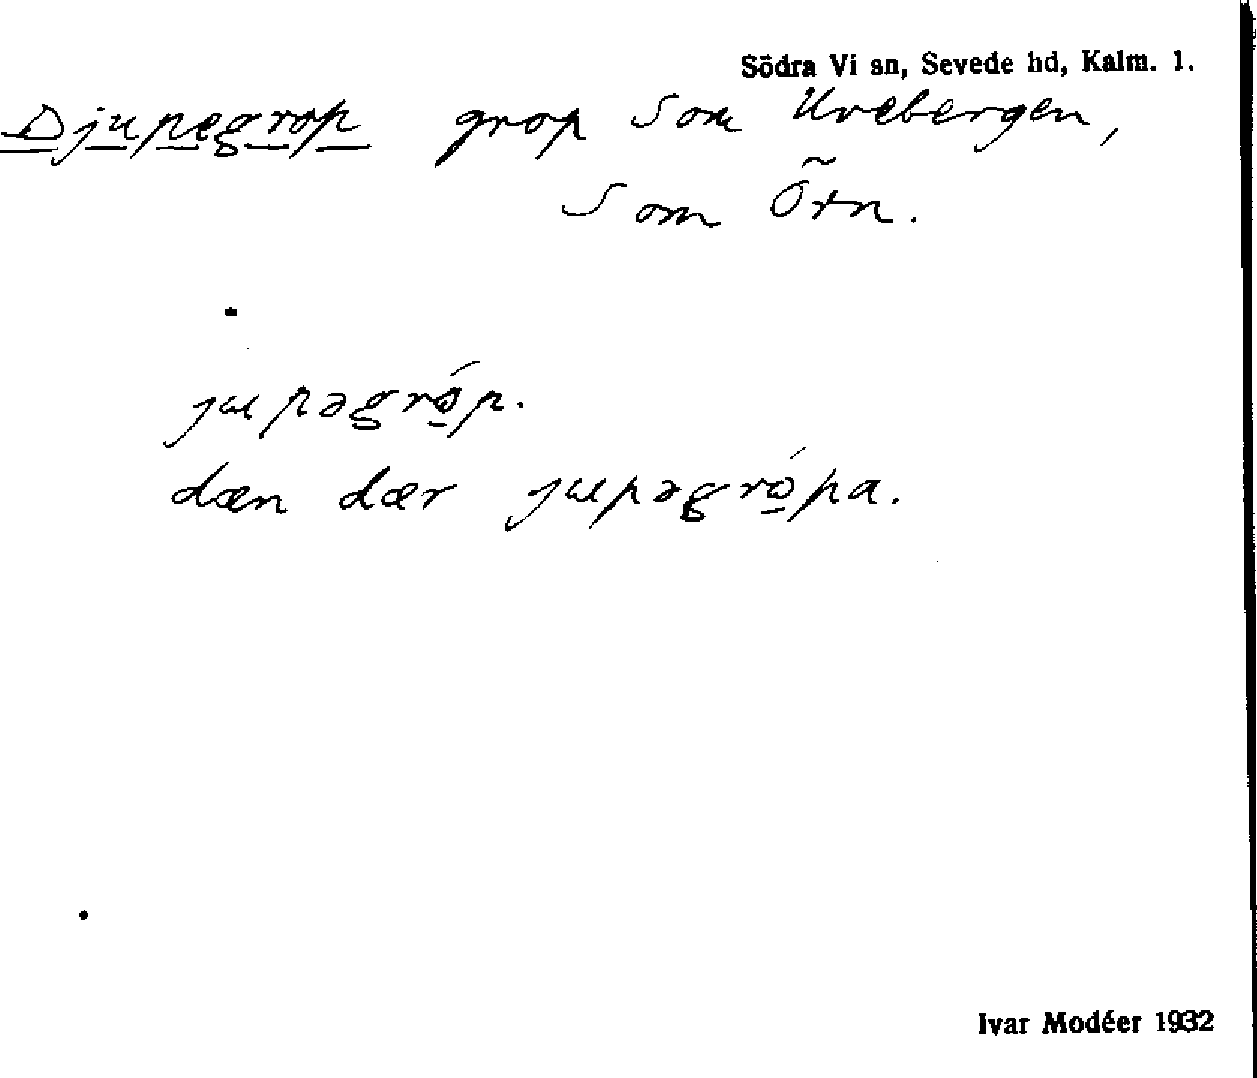 Södra Vi sn, Sevede hd, Kalm. l.
Djupegrop grop som Uvebergen,
som Örn.
jupəgróp.
dæn dær jupəgrópa.
Ivar Modéer 1932